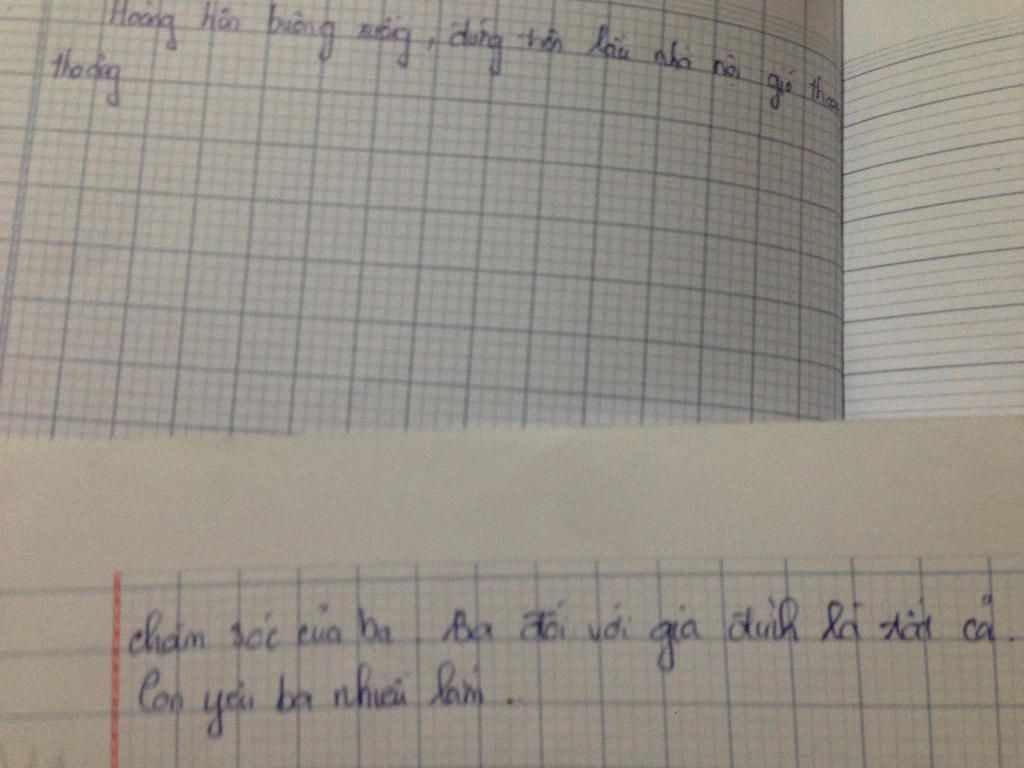 Hoàng hôn buông xuống, đứng trên lầu nhà nội gió thoang
thoảng
chăm sóc của ba Ba đối với gia đình là tất cả.
Con yêu ba nhiều lắm..